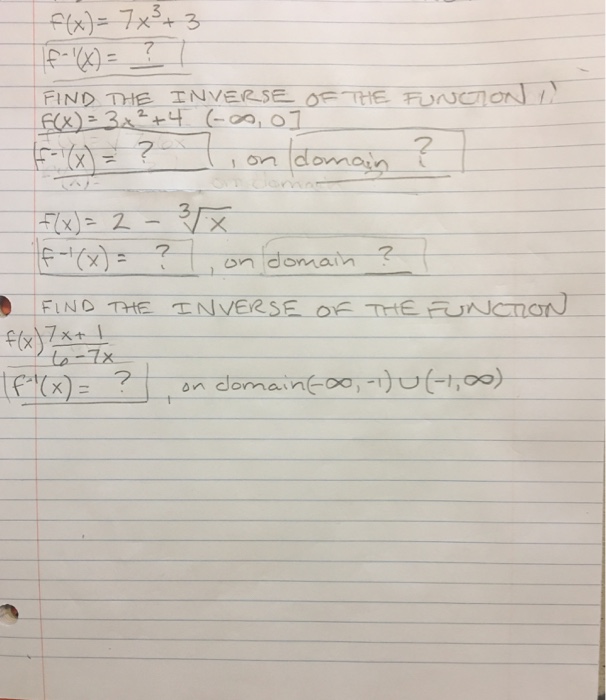 f(x) = 7x³ + 3
f⁻¹(x) = ?
FIND THE INVERSE OF THE FUNCTION
f(x) = 3x² + 4 (-∞, 0]
f⁻¹(x) = ? , on domain ?
f(x) = 2 - ∛x
f⁻¹(x) = ? , on domain ?
FIND THE INVERSE OF THE FUNCTION
f(x) 7x + 1
6 - 7x
f⁻¹(x) = ? , on domain (-∞, -1) ∪ (-1, ∞)